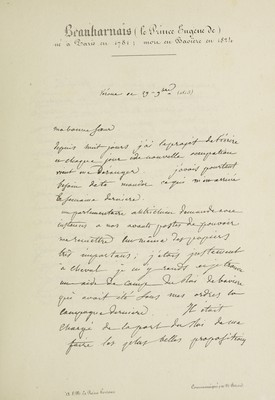 Beauharnais (le Prince Eugène de)
né à Paris en 1781; mort en Bavière en 1824
Vérone ce 29 9bre
ma bonne Sœur
depuis huit jours j'ai le projet de t'écrire
et chaque jour de nouvelle occupation
vient me déranger. j'avais pourtant
besoin de te mander ce qui m'en arrivé
la semaine dernière
un parlementaire autrichien demande avec
instances à nos avants postes de pouvoir
me remettre lui même des papiers
très importans, j'étais justement
à cheval je m'y rends et je trouve
un aide de camp du Roi de bavière
qui avait été sous mes ordres la
campagne dernière. Il était
chargé de la part du Roi de me
faire les plus belles propositions